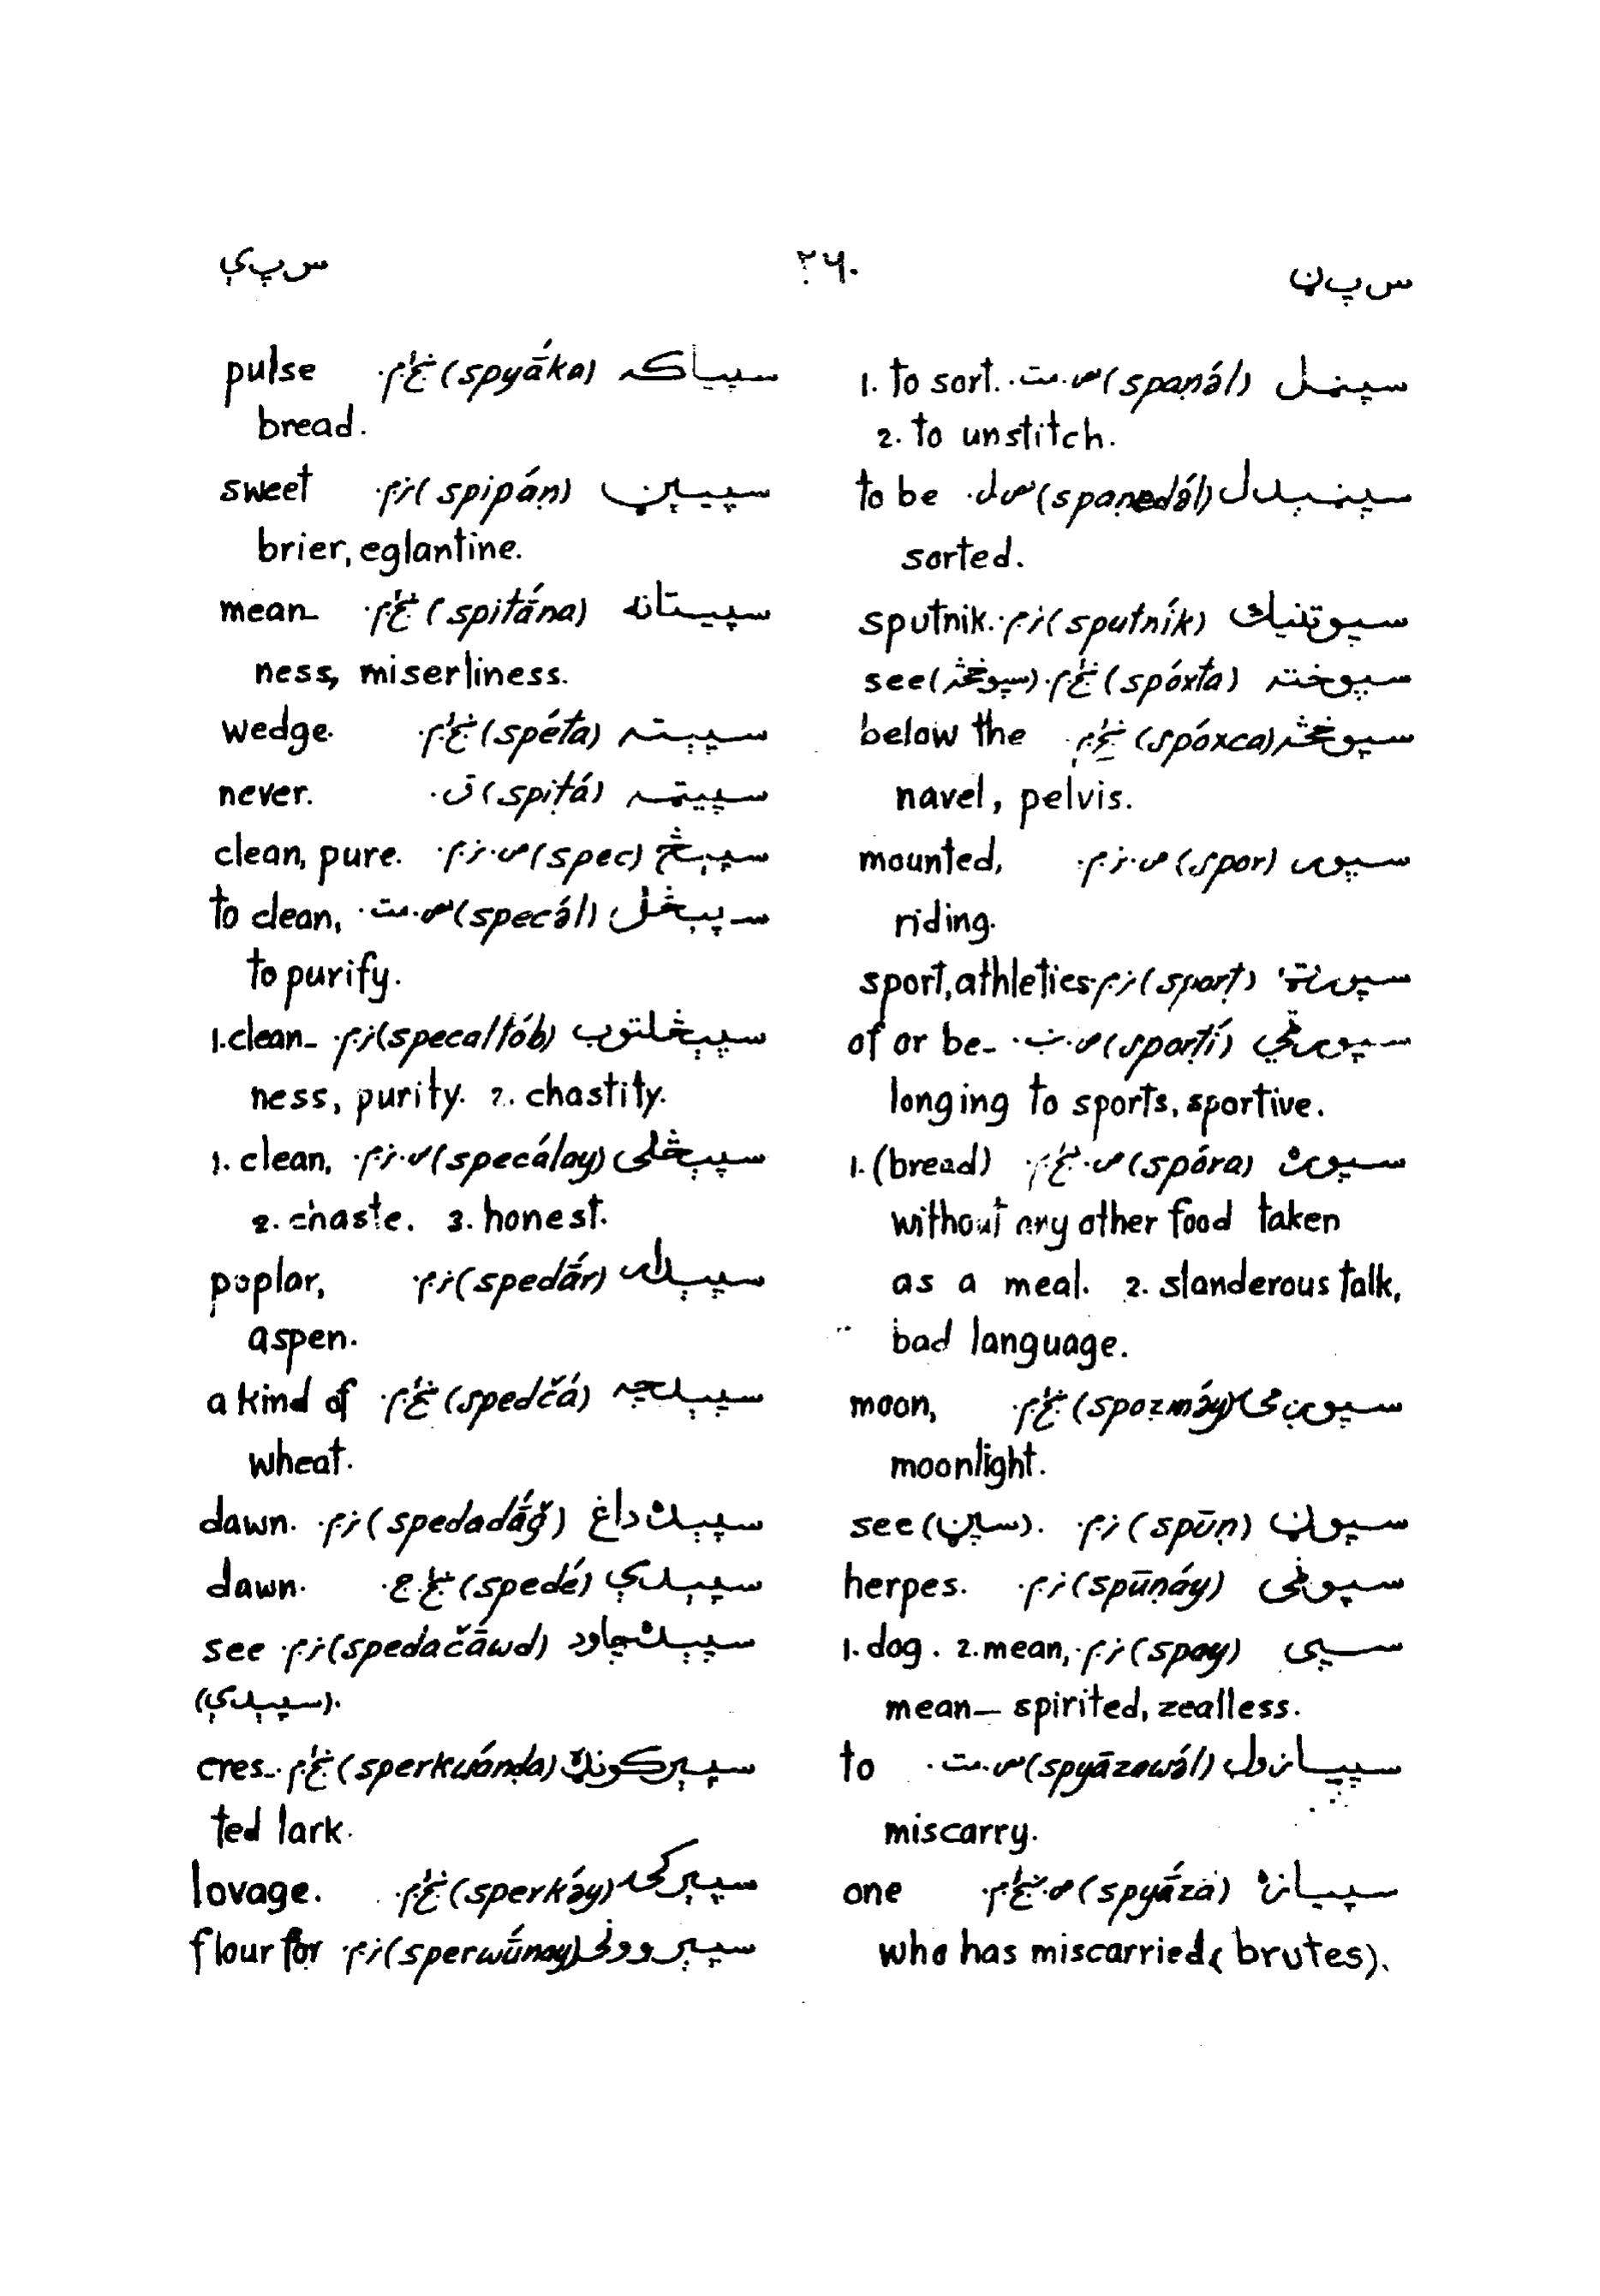 س پ ڼ ۲۶۰ س پ ې
سپڼل (spaṇə́l) مص. مت. 1. to sort.
2. to unstitch.
سپڼېدل (spaṇedə́l) مص ل. to be
sorted.
سپوتنیک (sputník) sputnik.
سپوخته (spóxta) see (سپوڅڅه)
(spóxca) below the
navel, pelvis.
سپور (spor) mounted,
riding.
سپورټ (sporṭ) sport, athletics
سپورټي (sporṭí) of or be-
longing to sports, sportive.
سپوره (spóra) 1. (bread)
without any other food taken
as a meal. 2. slanderous talk,
bad language.
سپوږمۍ (spoẓmə́y) moon,
moonlight.
سپوڼ (spūṇ) see (سپڼ).
سپوڼی (spūṇáy) herpes.
سپی (spay) 1. dog. 2. mean,
mean-spirited, zealless.
سپیازول (spyāzawə́l) مص. مت. to
miscarry.
سپیازه (spyā́za) one
who has miscarried (brutes).
سپیاکه (spyā́ka) pulse
bread.
سپیپڼ (spipáṇ) sweet
brier, eglantine.
سپیتانه (spitā́na) mean-
ness, miserliness.
سپېته (spéta) wedge.
سپیټه (spiṭá) ق. never.
سپېڅ (spec) clean, pure.
سپېڅل (specə́l) مص. مت. to clean,
to purify.
سپېڅلتوب (specaltób) 1. clean-
ness, purity. 2. chastity.
سپېڅلی (specə́lay) 1. clean,
2. chaste. 3. honest.
سپېدار (spedā́r) poplar,
aspen.
سپېدچه (spedčá) a kind of
wheat.
سپېده داغ (spedadā́ğ) dawn.
سپېدې (spedé) dawn.
سپېده چاود (spedačā́wd) see
(سپېدې).
سپېرکونډه (sperkwánḍa) cres-
ted lark.
سپېرکۍ (sperkə́y) lovage.
سپېروونی (sperwū́nay) flour for